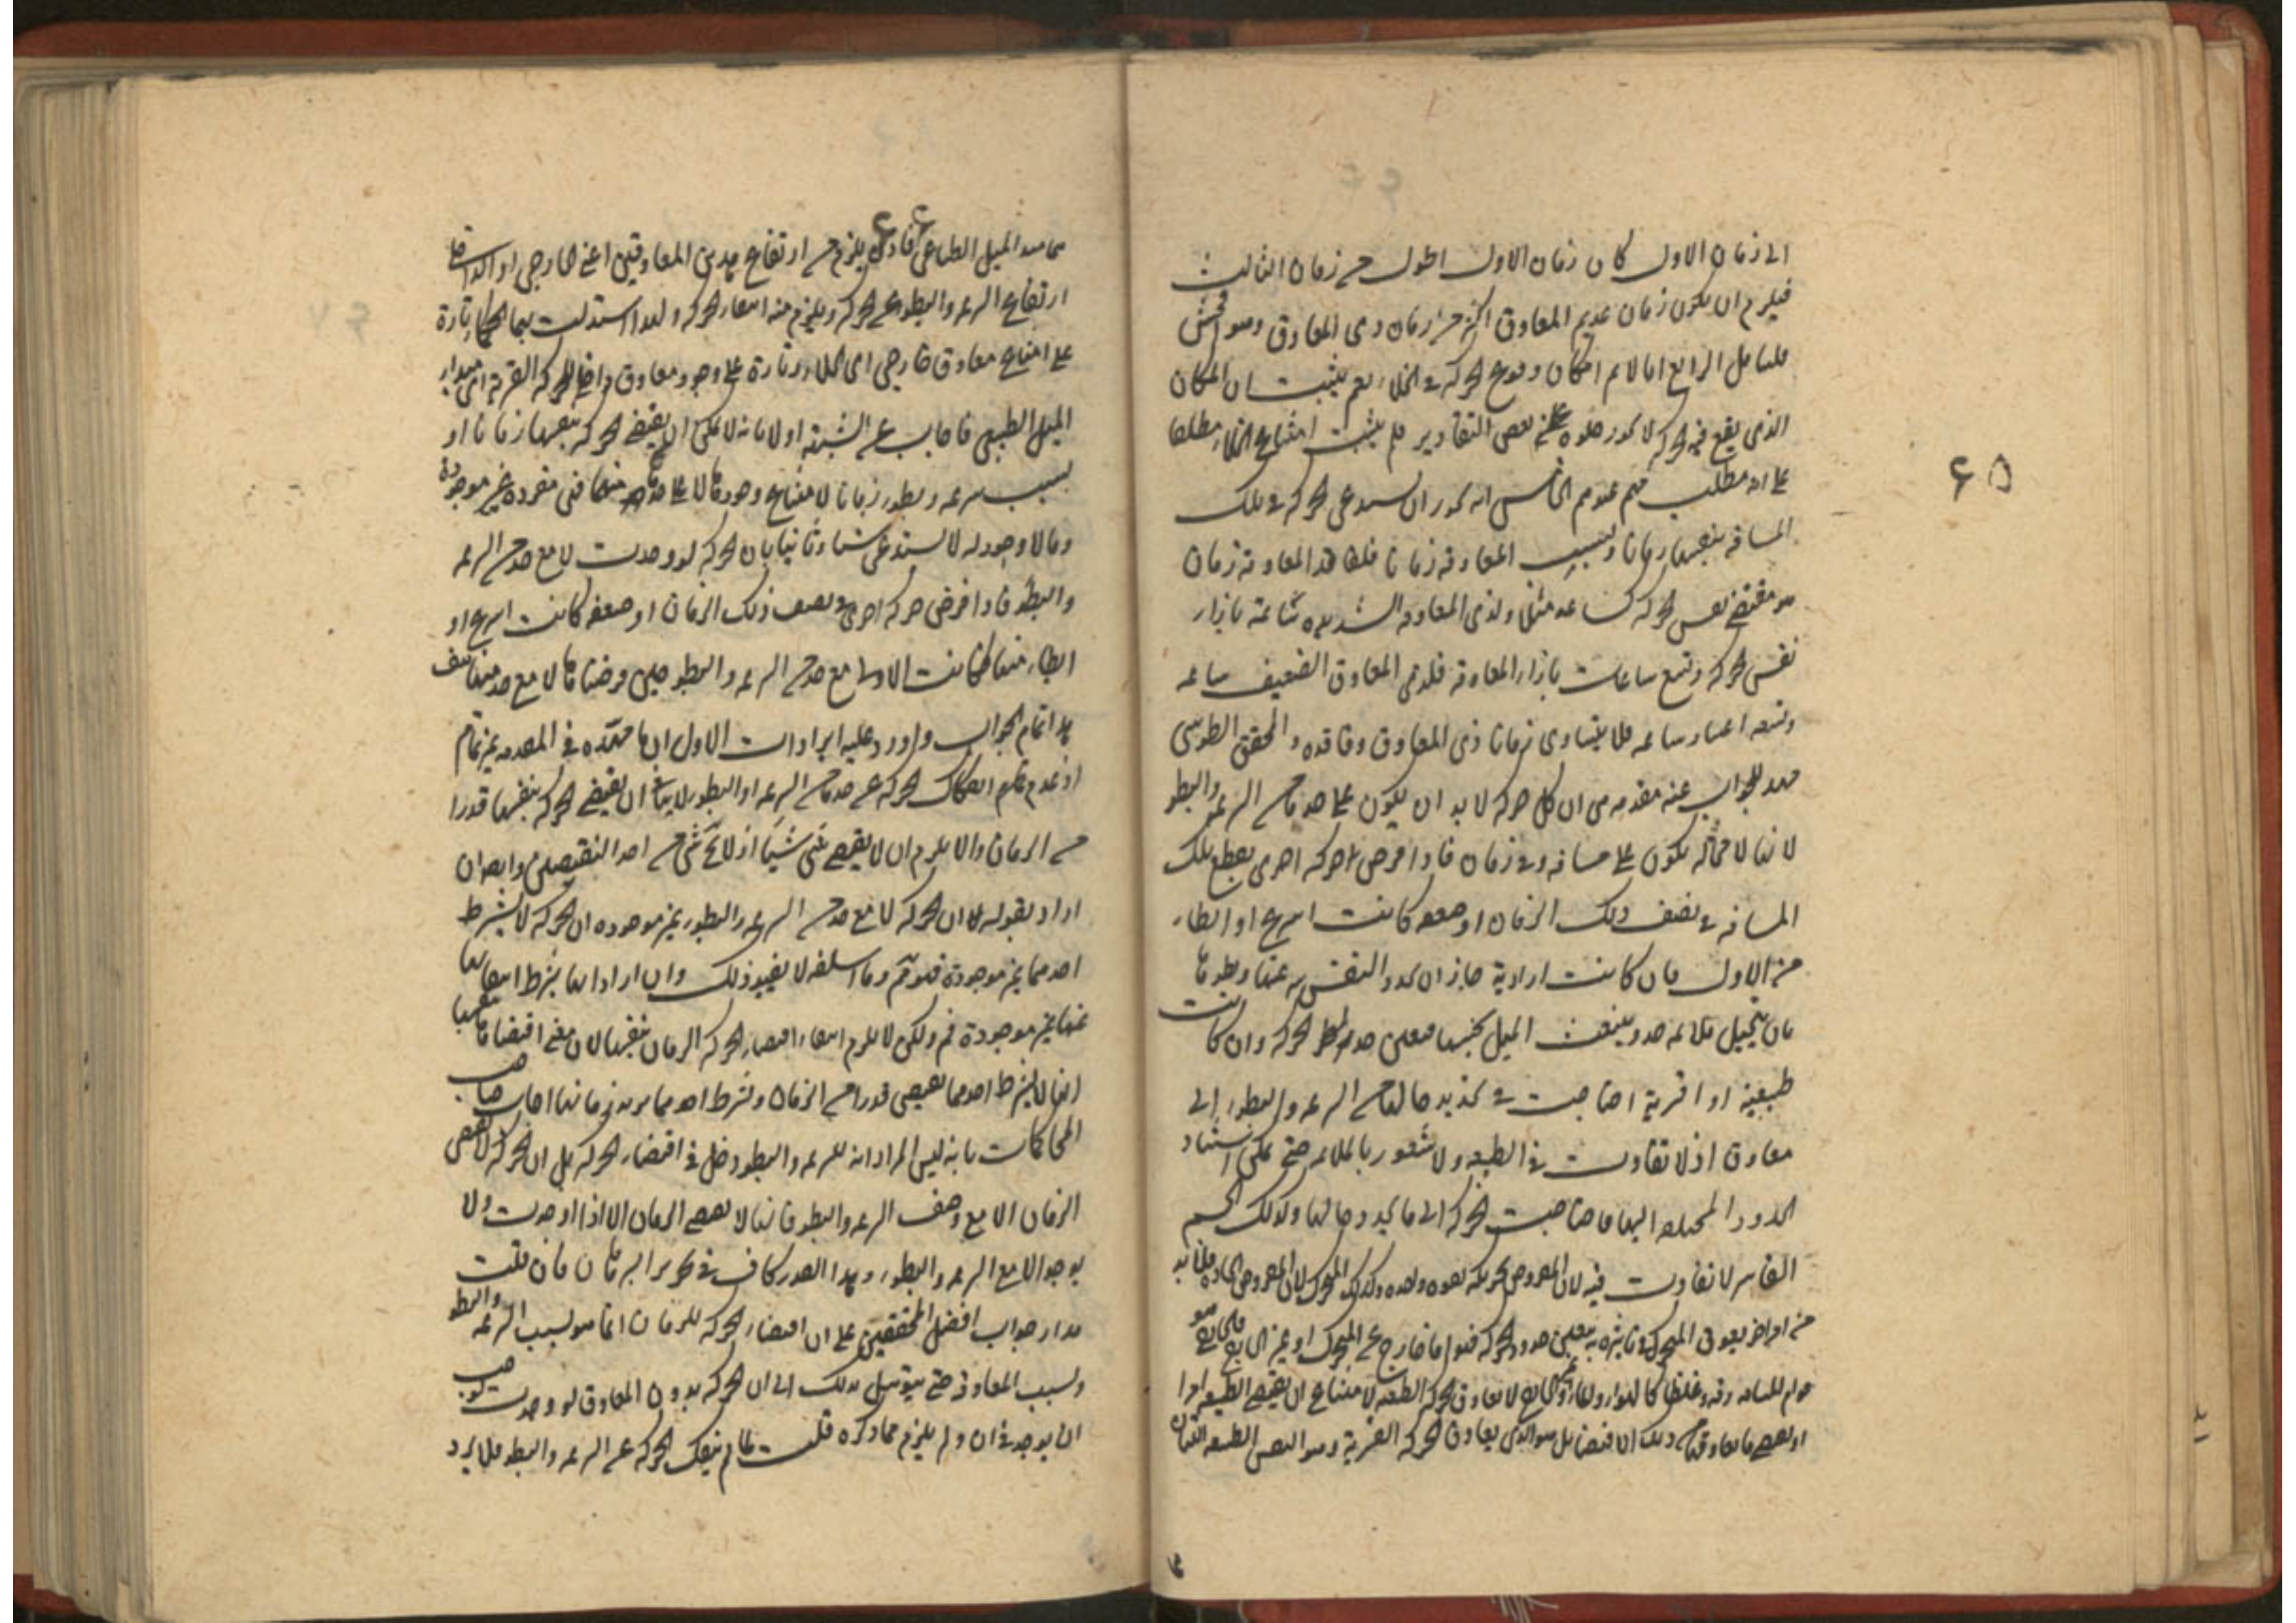 الى زمان الاول كان زمان الاول اطول من زمان الثالث
فيلزم ان يكون زمان عديم المعاوق اكثر من زمان ذى المعاوق وهو افحش
فليتامل الرابع انا لا نم امكان وقوع الحركة فى الخلاء نعم يثبت ان المكان
الذى يقع فيه الحركة لا يجوز خلوه على بعض التقادير فلم يثبت امتناع الخلاء مطلقا
على انه مطلب مهم عندهم الخامس انه يجوز ان يستدعى الحركة فى تلك
المسافة بنفسها زمانا وبسبب المعاوقة زمانا فلفاقد المعاوقة زمان
هو مقتضى نفس الحركة كساعة مثلا ولذى المعاوقة الشديدة ساعة بازاء
نفس الحركة وتسع ساعات بازاء المعاوقة فلذى المعاوق الضعيف ساعة
وتسعة اعشار ساعة فلا يتساوى زمانا ذى المعاوق وفاقده والمحقق الطوسى
مهد للجواب عنه مقدمة هى ان كل حركة لا بد ان يكون على حد ما من السرعة والبطو
لانها لا محالة يكون على مسافة وفى زمان فاذا فرض حركة اخرى يقطع تلك
المسافة فى نصف ذلك الزمان او ضعفه كانت اسرع او ابطاء
من الاول فان كانت ارادية جاز ان يحدد النفس سرعتها وبطوها
بان يتخيل ملائمة حد وينبعث الميل بحسبها فيعين حد الحركة وان كانت
طبيعية او قسرية احتاجت فى تحديد حالها من السرعة والبطوء الى
معاوق اذ لا تفاوت فى الطبيعة ولا شعور بالملائمة حتى يمكن استناد
الحدود المختلفة اليها فاحتاجت الحركة الى ما يحدد حالها وكذلك الجسم
القاسر لا تفاوت فيه لان المفروض تحريكه بقوة واحدة وكذلك المتحرك لان المفروض اتحاده فلا بد
من امر اخر يعوق المتحرك فى تاثيره به يتعين حدود الحركة فهو اما خارج عن المتحرك او غير خارج فالخارج هو
قوام للمسافة رقة وغلظا كالهواء والماء وغير الخارج لا يعاوق الحركة الطبيعة لامتناع ان يقتضى الطبيعة امرا
او يقتضى ما يعاوقها من ذلك الاقتضا بل هو الذى يعاوق الحركة القسرية وهو النفس الطبيعة اللتان
هما مبدء الميل الطباعى فاذن يلزم من ارتفاع هذين المعاوقين اعنى الخارجى او الداخلى
ارتفاع السرعة والبطو عن الحركة ويلزم منه انتفاء الحركة ولهذا استدلت بها الحكماء تارة
على امتناع معاوق خارجى اى الخلاء وتارة على وجود معاوق داخلى للحركة القسرية اى مبداء
الميل الطبيعى فاجاب عن الشبهة اولا بانه لا يمكن ان يقتضى الحركة بنفسها زمانا او
بسبب سرعة وبطوء زمانا لامتناع وجودها لا على حد ما منهما فهى مفردة غير موجودة
وما لا وجود له لا يستدعى شيئا وثانيا بان الحركة لو وجدت لا مع حد من السرعة
والبطو فاذا فرض حركة اخرى فى نصف ذلك الزمان او ضعفه كانت اسرع او
ابطاء منها فكانت الاولى مع حد من السرعة والبطو حين فرضناها لا مع حد منهما هف
هذا تمام الجواب واورد عليه ايرادات الاول ان ما مهده فى المقدمة غير تمام
اذ عدم انفكاك الحركة عن حد ما من السرعة او البطوء لا ينافى ان يقتضى الحركة بنفسها قدرا
من الزمان والا يلزم ان لا يقتضى شئ شيئا اذ لا يخ شئ من احد النقيضين وايضا ان
اراد بقوله ان الحركة لا مع حد من السرعة والبطوء غير موجودة ان الحركة لا بشرط
احدهما غير موجودة فهو مم وما اسلفه لا يفيد ذلك وان اراد انها بشرط انتفائهما
عنها غير موجودة فم ولكن لا يلزم انتفاء اقتضاء الحركة الزمان بنفسها لان معنى اقتضائها بنفسها
انها لا بشرط احدهما يقتضى قدرا من الزمان وبشرط احدهما يزيد زمانها اجاب صاحب
المحاكمات بانه ليس المراد انه للسرعة والبطو دخل فى اقتضاء الحركة بل ان الحركة لا يقتضى
الزمان الا مع وصف السرعة والبطو فانها لا يقتضى الزمان الا اذا وجدت ولا
يوجد الا مع السرعة والبطوء وهذا القدر كاف فى تحرير البرهان فان قلت
مدار جواب افضل المحققين على ان اقتضاء الحركة للزمان انما هو بسبب السرعة والبطو
وبسبب المعاوق حتى يتوسل بذلك الى ان الحركة بدون المعاوق لو وجدت لوجب
ان يوجد فى ان ولم يلزم مما ذكره قلت لما لم ينفك الحركة عن السرعة والبطو فلا يرد
۶۵